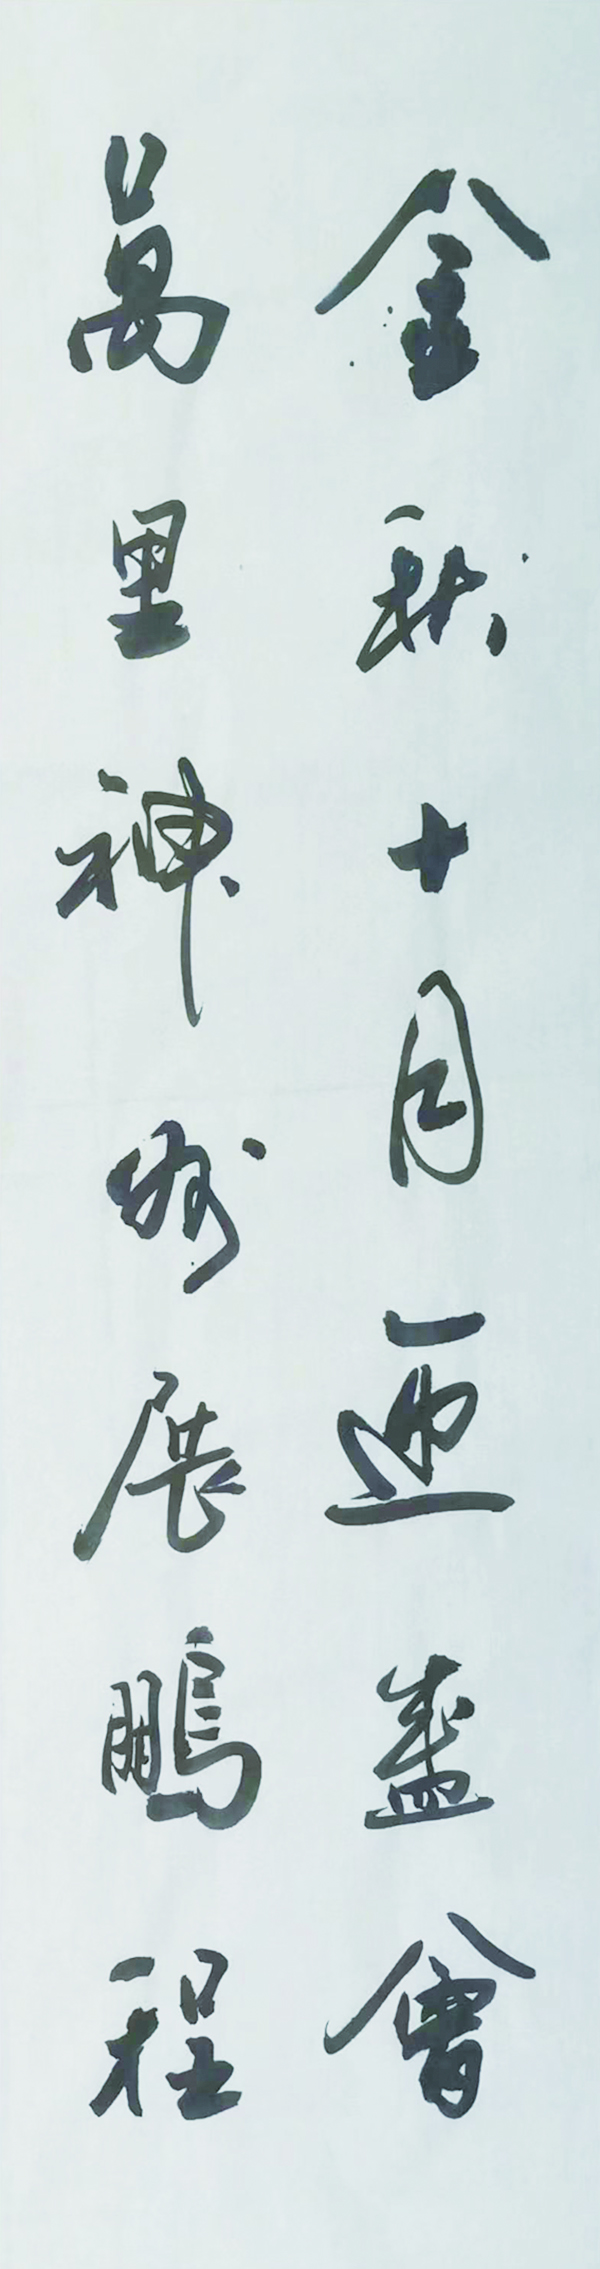 金秋十月迎盛會
萬里神州展鵬程